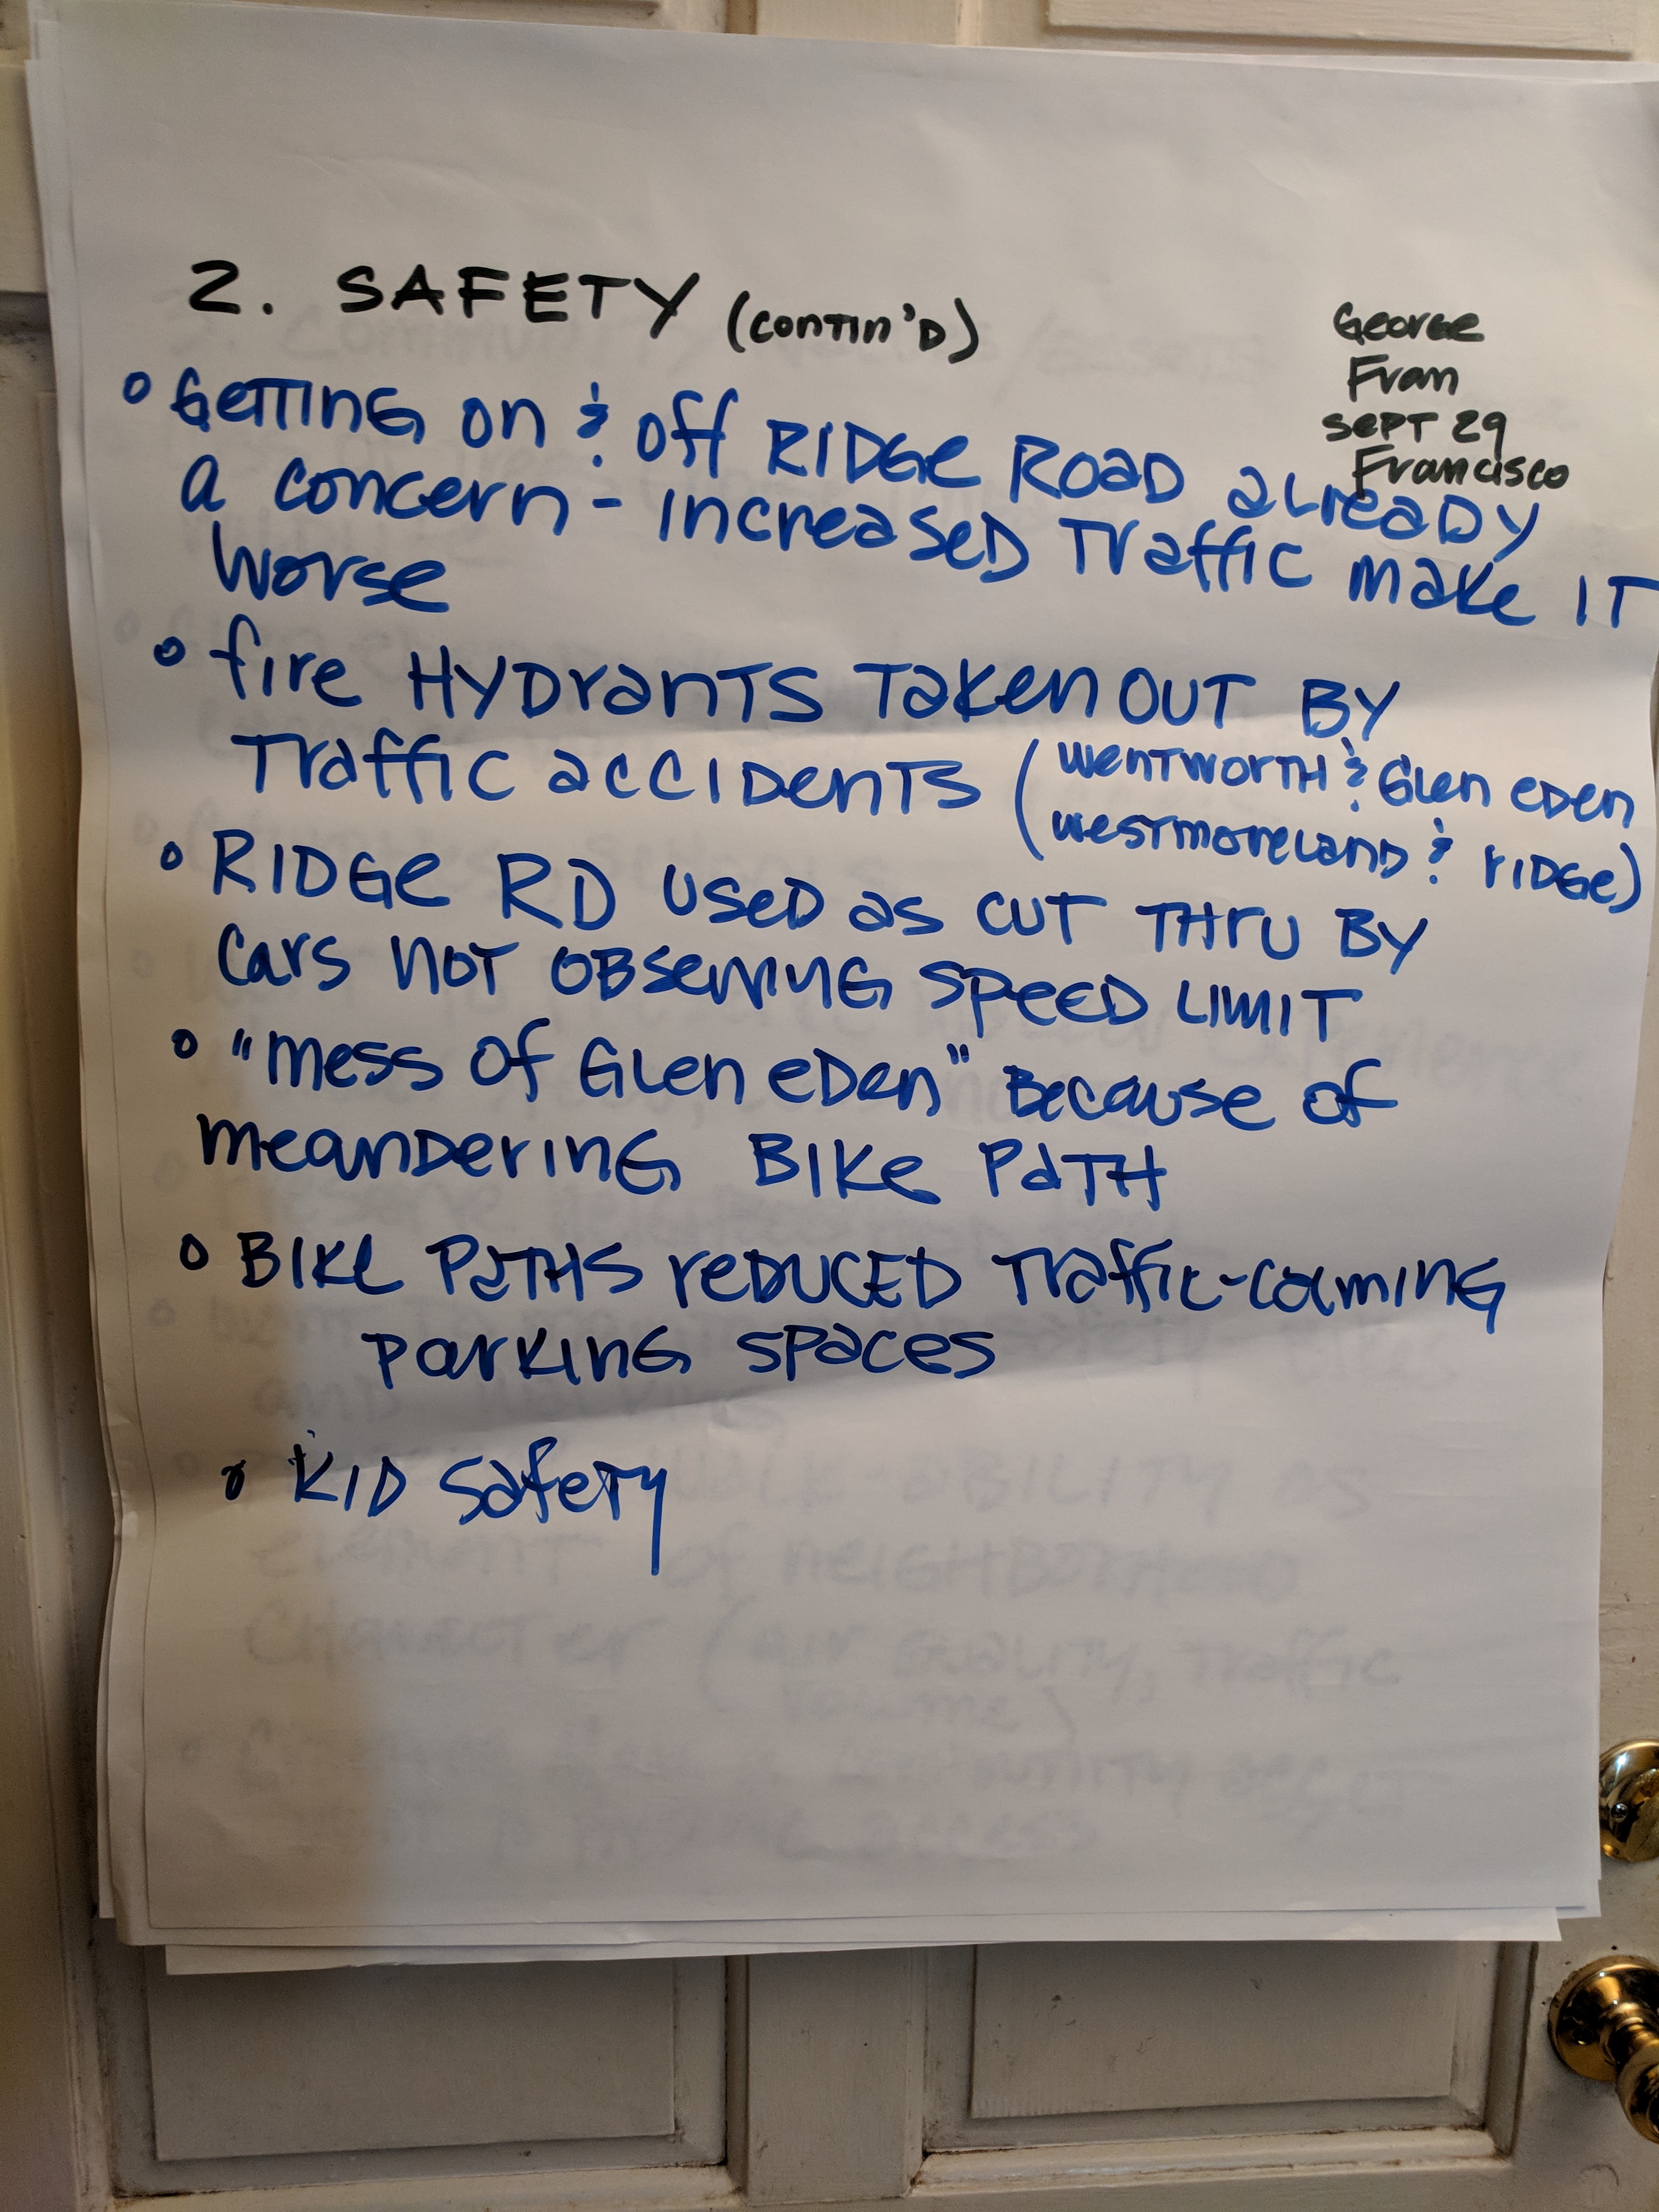 2. SAFETY (CONTIN'D)
George
Fran
SEPT 29
Francisco
GETTING on & off RIDGE ROAD ALREADY
a concern - INCREASED Traffic make IT
worse
fire HYDrants Taken OUT BY
Traffic accidents (Wentworth & Glen Eden
Westmoreland & Ridge)
RIDGE RD used as CUT THru BY
Cars not OBSERVING SPEED LIMIT
"Mess of Glen Eden" Because of
meandering Bike Path
Bike Paths reduced Traffic-calming
parking spaces
KID Safety